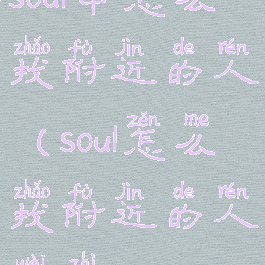 soul中怎么
zhǎo fù jìn de rén
找附近的人
zěn me
(soul怎么
zhǎo fù jìn de rén
找附近的人
wèi zhì